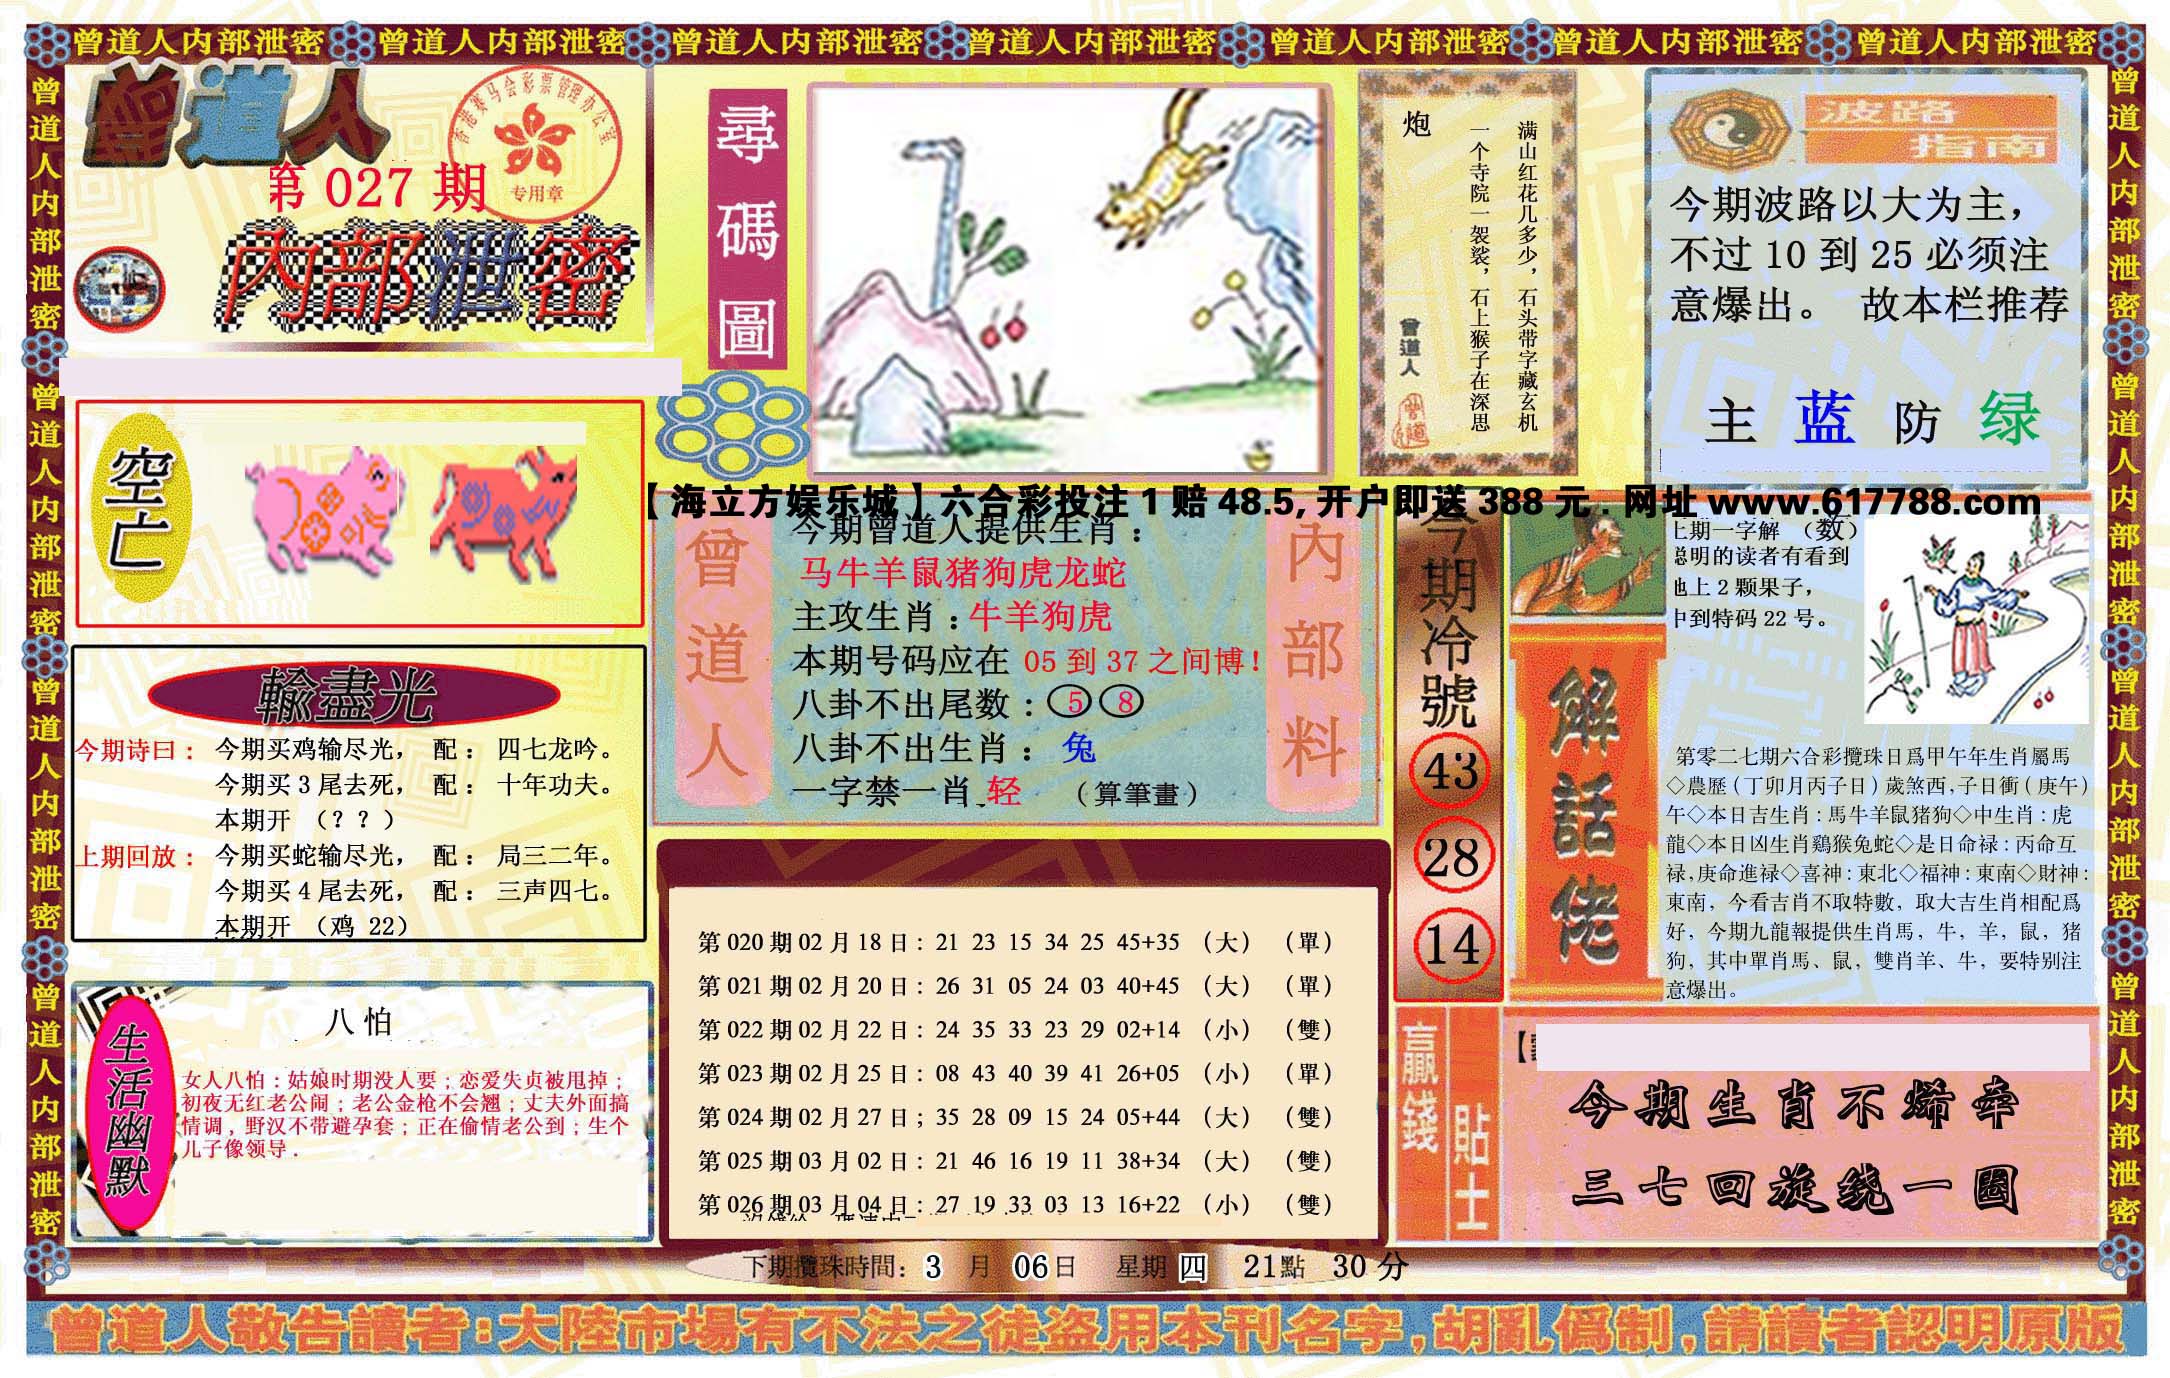 曾道人内部泄密 曾道人内部泄密 曾道人内部泄密 曾道人内部泄密 曾道人内部泄密 曾道人内部泄密 曾道人内部泄密
曾道人内部泄密 曾道人内部泄密 曾道人内部泄密 曾道人内部泄密
曾道人
香港赛马会彩票管理办公室
专用章
第 027 期
内部泄密
尋碼圖
炮
满山红花几多少，石头带字藏玄机
一个寺院一袈裟，石上猴子在深思
曾道人
波路
指南
今期波路以大为主，
不过 10 到 25 必须注
意爆出。 故本栏推荐
主 蓝 防 绿
空亡
【海立方娱乐城】六合彩投注 1 赔 48.5, 开户即送 388 元 . 网址 www.617788.com
曾道人
今期曾道人提供生肖：
马牛羊鼠猪狗虎龙蛇
主攻生肖：牛羊狗虎
本期号码应在 05 到 37 之间博！
八卦不出尾数：5 8
八卦不出生肖： 兔
一字禁一肖 轻 （算筆畫）
内部料
今期冷號
43
28
14
上期一字解 （数）
聪明的读者有看到
地上 2 颗果子，
中到特码 22 号。
解話佬
第零二七期六合彩攬珠日爲甲午年生肖屬馬
◇農歷（丁卯月丙子日）歲煞西,子日衝（庚午）
午◇本日吉生肖：馬牛羊鼠猪狗◇中生肖：虎
龍◇本日凶生肖鷄猴兔蛇◇是日命禄：丙命互
禄,庚命進禄◇喜神：東北◇福神：東南◇財神：
東南，今看吉肖不取特數，取大吉生肖相配爲
好，今期九龍報提供生肖馬，牛，羊，鼠，猪
狗，其中單肖馬、鼠，雙肖羊、牛，要特别注
意爆出。
輸盡光
今期诗曰： 今期买鸡输尽光， 配： 四七龙吟。
今期买 3 尾去死， 配： 十年功夫。
本期开 （？？）
上期回放： 今期买蛇输尽光， 配： 局三二年。
今期买 4 尾去死， 配： 三声四七。
本期开 （鸡 22）
生活幽默
八 怕
女人八怕：姑娘时期没人要；恋爱失贞被甩掉；
初夜无红老公闹；老公金枪不会翘；丈夫外面搞
情调，野汉不带避孕套；正在偷情老公到；生个
儿子像领导．
第 020 期 02 月 18 日：21 23 15 34 25 45+35 （大） （單）
第 021 期 02 月 20 日：26 31 05 24 03 40+45 （大） （單）
第 022 期 02 月 22 日：24 35 33 23 29 02+14 （小） （雙）
第 023 期 02 月 25 日：08 43 40 39 41 26+05 （小） （單）
第 024 期 02 月 27 日；35 28 09 15 24 05+44 （大） （雙）
第 025 期 03 月 02 日：21 46 16 19 11 38+34 （大） （雙）
第 026 期 03 月 04 日：27 19 33 03 13 16+22 （小） （雙）
下期攬珠時間：3 月 06日 星期 四 21點 30 分
贏錢貼士
今期生肖不烯牵
三七回旋绕一圈
曾道人敬告讀者:大陸市場有不法之徒盗用本刊名字,胡亂僞制,請讀者認明原版
曾道人内部泄密 曾道人内部泄密 曾道人内部泄密 曾道人内部泄密